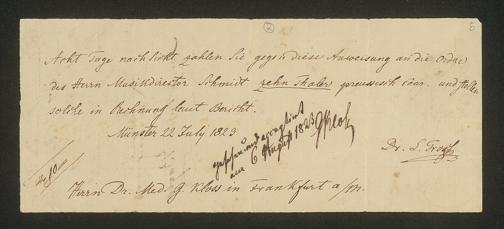 Acht Tage nach Sicht zahlen Sie gegen diese Anweisung an die Ordre
des Herrn Musikdirector Schmidt zehn Thaler preussisch Cour. und stellen
solche in Rechnung laut Bericht.
Münster 22 July 1823
gesehen und acceptirt
am 6 August 1823 GKloß
Dr.
Herrn Dr. Med. G. Kloss in Frankfurt a/m.